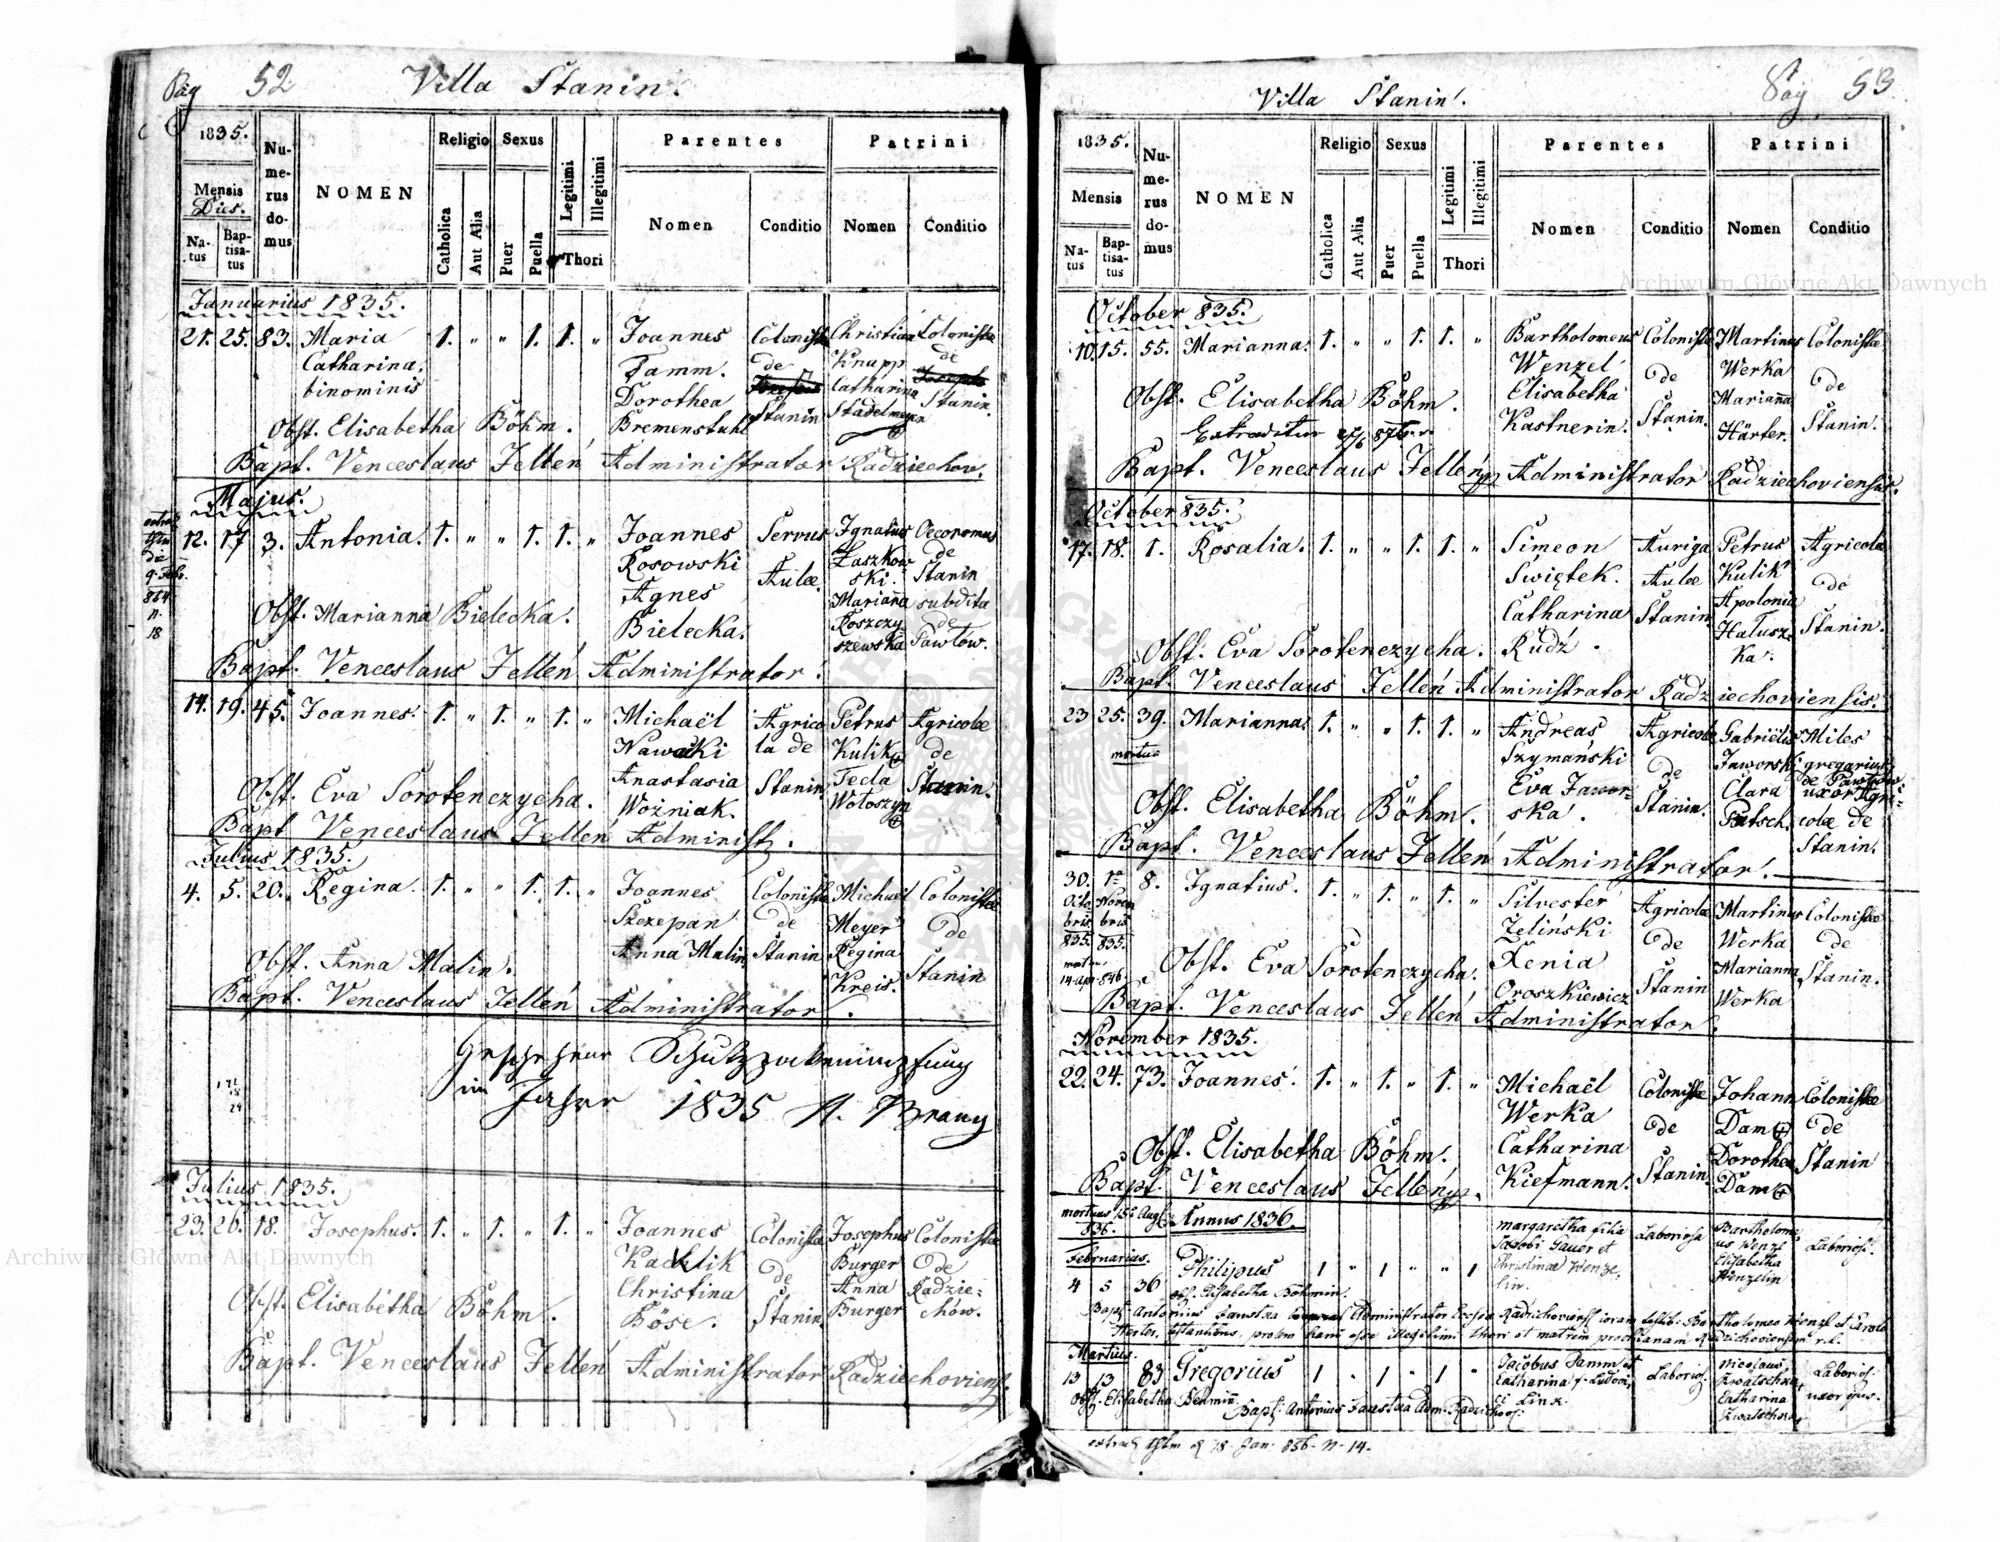 Pag 52 Villa Stanin.
1835.
Mensis Dies.
Natus
Baptisatus
Numerus domus
NOMEN
Religio
Catholica
Aut Alia
Sexus
Puer
Puella
Legitimi
Illegitimi
Thori
Parentes
Nomen
Conditio
Patrini
Nomen
Conditio
Januarius 1835.
21. 25. 83. Maria 1. " " 1. 1. " Joannes Colonistæ Christian Colonistæ
Catharina, Tamm. de Knapp de
binominis Dorothea Stanin Catharina Stanin.
Obst. Elisabetha Böhm. Bremenstuhl Stadelmeyer
Bapt. Venceslaus Jelleń Administrator Radziechov.
Majus.
12. 17 3. Antonia. 1. " " 1. 1. " Joannes Servus Ignatius Oeconomus
Rosowski Aulæ. Łaszkowski. de Stanin
Agnes Marianna subdita
Obst. Marianna Bielecka. Bielecka. Roszczyszewska de Pawłów.
Bapt. Venceslaus Jelleń Administrator.
14. 19. 45. Joannes. 1. " 1. " 1. " Michaël Agrico Petrus Agricolæ
Nawacki la de Kulik de
Anastasia Stanin Tecla Stanin.
Obst. Eva Sorotenczycha. Woźniak. Wołoszyn
Bapt Venceslaus Jelleń Administ.
Julius 1835.
4. 5. 20. Regina. 1. " " 1. 1. " Joannes Colonistæ Michael Colonistæ
Szczepan de Meyer de
Anna Malin Stanin Regina Stanin
Obst. Anna Malin. Kreis.
Bapt. Venceslaus Jelleń Administrator.
Geschehene Schutzpockenimpfung
im Jahre 1835
Julius 1835.
23. 26. 18. Josephus. 1. " 1. " 1. " Joannes Colonistæ Josephus Colonistæ
Kachlik de Burger de
Christina Stanin Anna Radzie-
Obst. Elisabetha Böhm. Böse. Burger chów.
Bapt. Venceslaus Jelleń Administrator Radziechoviens.
Villa Stanin. Pag 53
1835.
Mensis
Natus
Baptisatus
Numerus domus
NOMEN
Religio
Catholica
Aut Alia
Sexus
Puer
Puella
Legitimi
Illegitimi
Thori
Parentes
Nomen
Conditio
Patrini
Nomen
Conditio
October 835.
10. 15. 55. Marianna. 1. " " 1. 1. " Bartholomeus Colonistæ Martinus Colonistæ
Wenzel de Werka de
Obst. Elisabetha Böhm. Elisabetha Stanin. Marianna Stanin.
Extraditur Kastnerin. Härter.
Bapt. Venceslaus Jellény Administrator Radziechoviensis.
October 835.
17. 18. 1. Rosalia. 1. " " 1. 1. " Simeon Auriga Petrus Agricola
Swiętek. Aulæ Kulik de
Catharina Stanin Apolonia Stanin.
Obst. Eva Sorotenczycha. Rudź. Haluszka.
Bapt. Venceslaus Jelleń Administrator Radziechoviensis.
23 25. 39. Marianna. 1. " " 1. 1. " Andreas Agricolæ Gabriëlis Miles
mortua Szymański de Jaworski gregarius
Eva Jawor- Stanin. Clara de Pawłów
Obst. Elisabetha Böhm. ska. Petsch. uxor Agri-
colæ de
Stanin.
Bapt. Venceslaus Jelleń Administrator.
30. 1 8. Ignatius. 1. " 1. " 1. " Silvester Agricolæ Martinus Colonistæ
Octobris Novembris Zeliński de Werka de
835. 835. Xenia Stanin Marianna Stanin.
Obst. Eva Sorotenczycha. Oroszkiewicz Werka
Bapt. Venceslaus Jelleń Administrator.
November 1835.
22. 24. 73. Joannes. 1. " 1. " 1. " Michaël Colonistæ Johann Colonistæ
Werka de Dam de
Obst. Elisabetha Böhm. Catharina Stanin. Dorothea Stanin
Bapt. Venceslaus Jellény. Kiefmann. Dam
mortuus 15 Aug. 836. Annus 1836.
Februarius.
4 5 36 Philipus 1 " 1 " " 1 Margaretha filia Laboriosa Bartholomeus Wenzl Laboriosi.
Jacobi Gauer et Elisabetha
Christinæ Wenzelin. Wenzelin
obs. Elisabetha Böhmin.
Bapt. Antonius Faustka Administrator Ecclsiæ Radziechoviens. coram testib. Bartholomeo Wenzl et Carolo
Herter, testantibus, prolem hanc esse illegitimi thori et matrem parochianam Radziechoviensem r. l.
Martius.
13 13 83 Gregorius 1 " 1 " 1 " Jacobus Tamm et Laborios. Nicolaus Laborios.
Catharina f. Ludovici Link. Kwatschka, Catharina Kwatschka uxor ejus.
Obst. Elisabetha Behmin. Bapt. Antonius Faustka Adm. Radziechov.
extrad. 18. Jan. 856. N. 14.
Archiwum Główne Akt Dawnych
Archiwum Główne Akt Dawnych